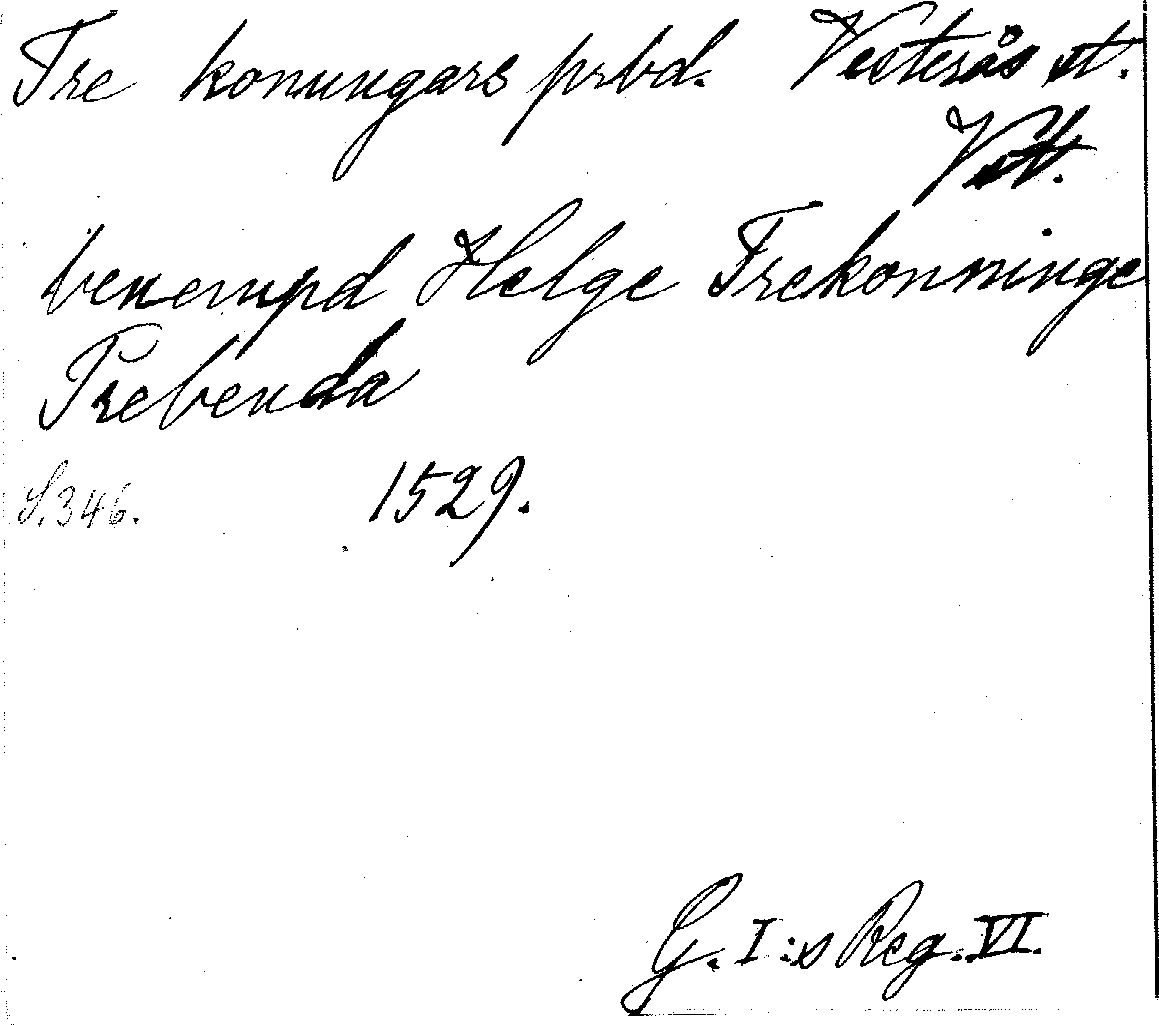 Tre konungars prbd. Vesterås st.
Vstt.
benempd Helge Trekonninge
Prebenda
S. 346. 1529.
G. I:s Reg. VI.